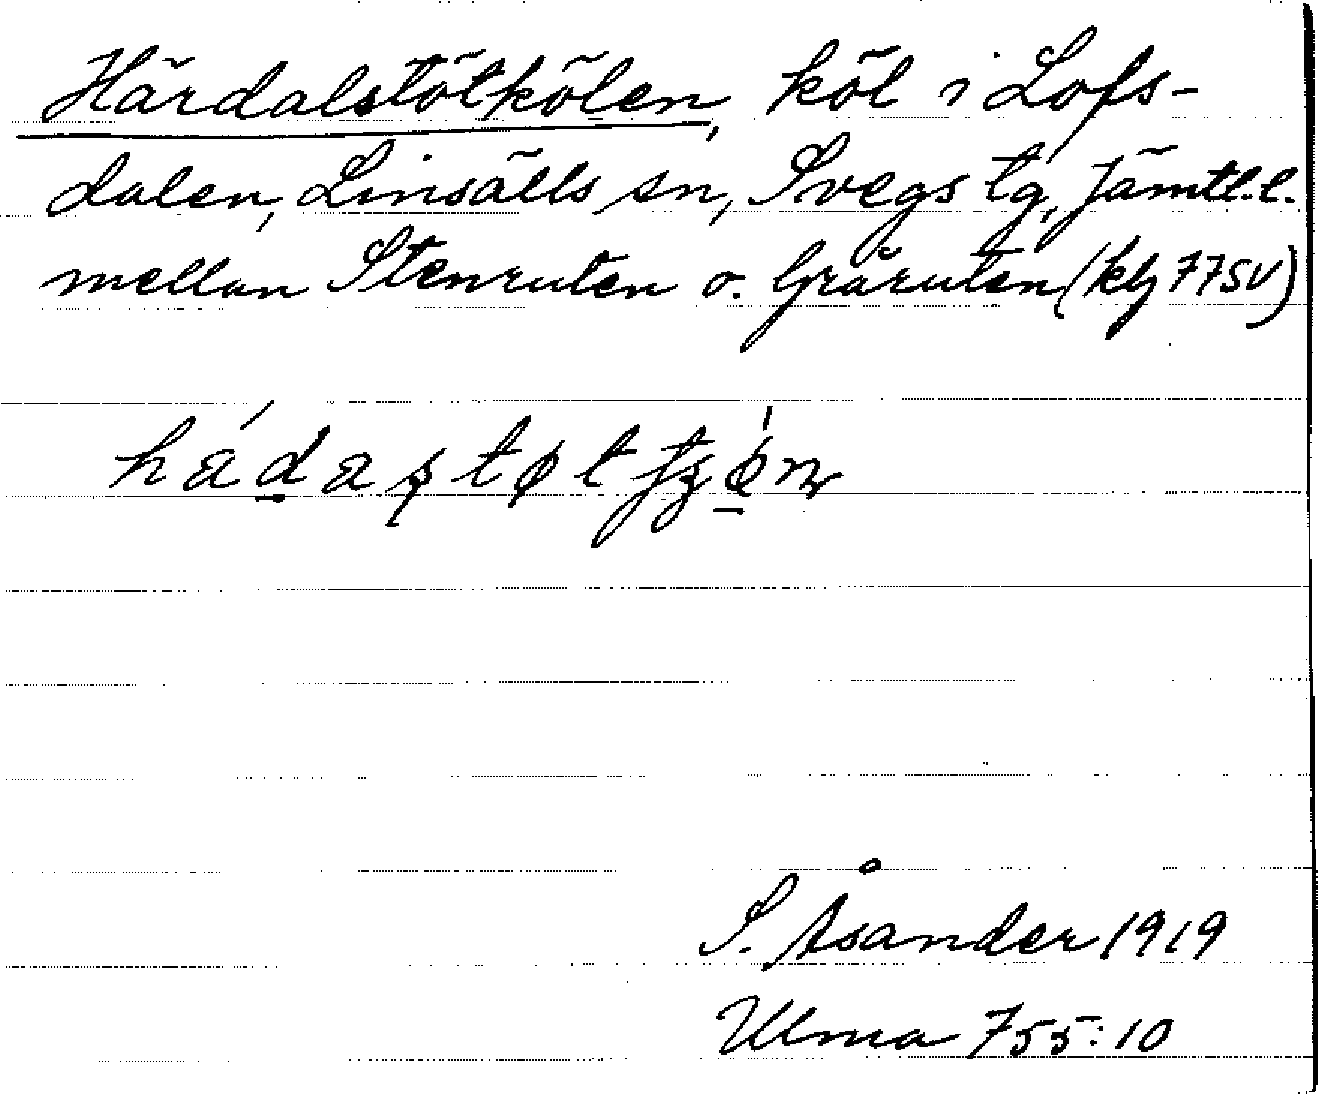 Härdalstötkölen, köl i Lofs-
dalen, Linsälls sn, Svegs tg, Jämtl.l.
mellan Stenruten o. Gråruten (kbj 77SV)
S. Åsander 1919
Ulma 755:10